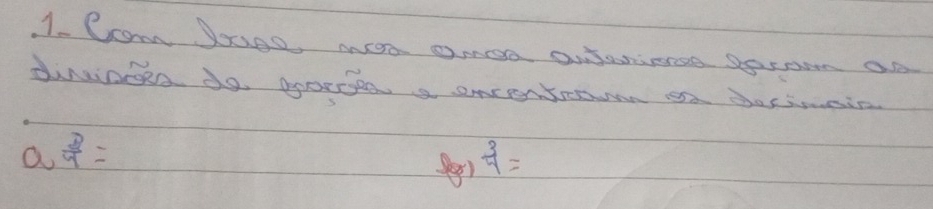 1- Com base nos anos anteriores façam as
divisões de frações e encontram os decimais
a) 3/4 =          b) 3/4 =